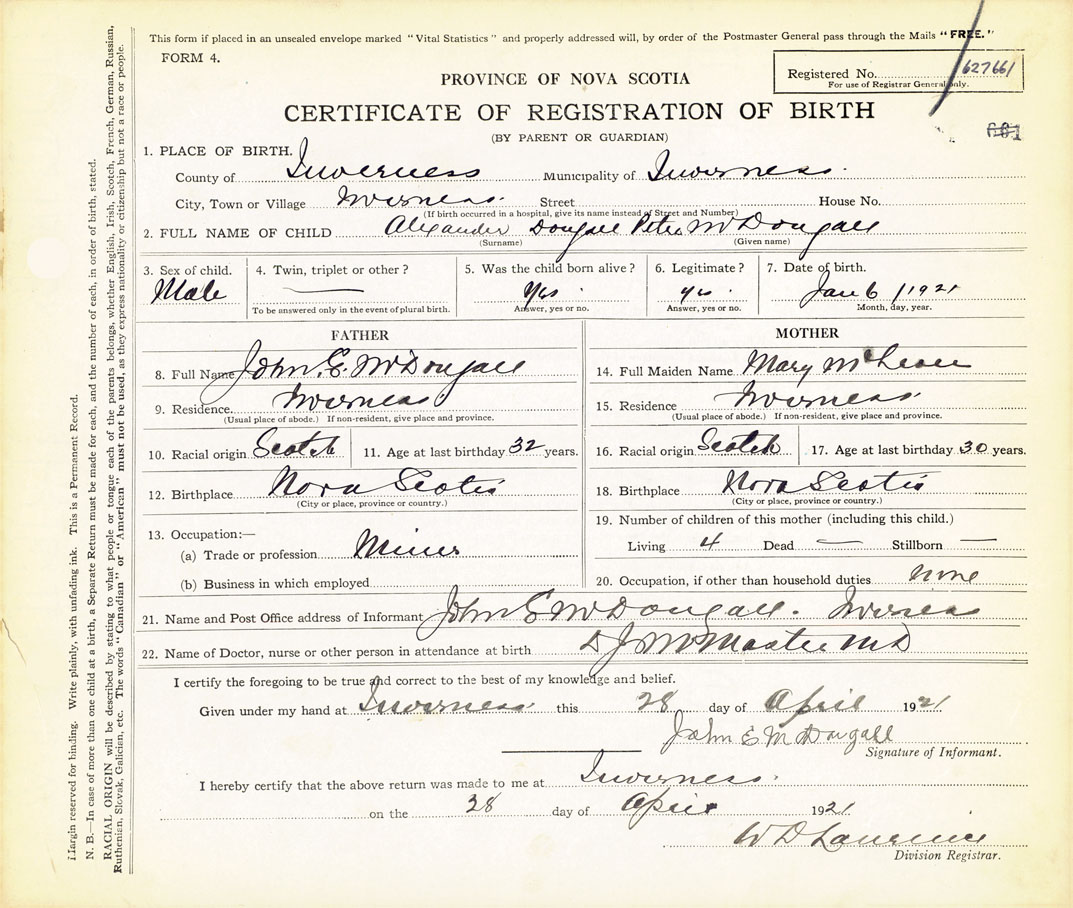 This form if placed in an unsealed envelope marked "Vital Statistics" and properly addressed will, by order of the Postmaster General pass through the Mails "FREE."
FORM 4.
PROVINCE OF NOVA SCOTIA
Registered No. 627661
For use of Registrar General only.
CERTIFICATE OF REGISTRATION OF BIRTH
601
(BY PARENT OR GUARDIAN)
1. PLACE OF BIRTH.
County of Inverness Municipality of Inverness.
City, Town or Village Inverness. Street House No.
(If birth occurred in a hospital, give its name instead of Street and Number)
2. FULL NAME OF CHILD Alexander Dougall Peter McDougall
(Surname) (Given name)
3. Sex of child. 4. Twin, triplet or other? 5. Was the child born alive? 6. Legitimate? 7. Date of birth.
Male — Yes. yes. Jan 6 / 1921
To be answered only in the event of plural birth. Answer, yes or no. Answer, yes or no. Month, day, year.
FATHER MOTHER
8. Full Name John. E. McDougall 14. Full Maiden Name Mary
9. Residence Inverness 15. Residence Inverness
(Usual place of abode.) If non-resident, give place and province. (Usual place of abode.) If non-resident, give place and province.
10. Racial origin Scotch 11. Age at last birthday 32 years. 16. Racial origin Scotch 17. Age at last birthday 30 years.
12. Birthplace Nova Scotia 18. Birthplace Nova Scotia
(City or place, province or country.) (City or place, province or country.)
13. Occupation:— 19. Number of children of this mother (including this child.)
(a) Trade or profession Miner Living 4 Dead — Stillborn —
(b) Business in which employed 20. Occupation, if other than household duties none
21. Name and Post Office address of Informant John E McDougall. Inverness
22. Name of Doctor, nurse or other person in attendance at birth D J McMaster MD
I certify the foregoing to be true and correct to the best of my knowledge and belief.
Given under my hand at Inverness this 28 day of April 1921
John E McDougall
Signature of Informant.
I hereby certify that the above return was made to me at Inverness.
on the 28 day of April 1921
W D Lawrence
Division Registrar.
Margin reserved for binding. Write plainly, with unfading ink. This is a Permanent Record.
N. B.—In case of more than one child at a birth, a Separate Return must be made for each, and the number of each, in order of birth, stated.
RACIAL ORIGIN will be described by stating to what people or tongue each of the parents belongs, whether English, Irish, Scotch, French, German, Russian,
Ruthenian, Slovak, Galician, etc. The words "Canadian" or "American" must not be used, as they express nationality or citizenship but not a race or people.